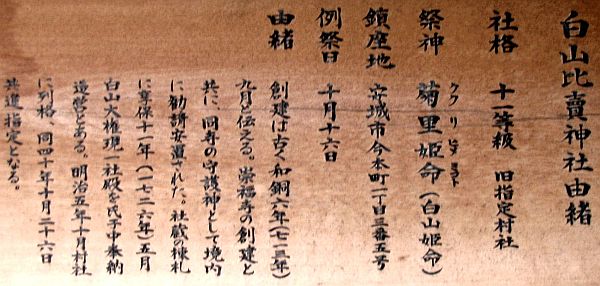 白山比賣神社由緒
社格 十一等級 旧指定村社
祭神 菊里姫命(白山姫命)
ククリヒメミコト
鎮座地 安城市今本町一丁目三番五号
例祭日 十月十六日
由緒 創建は古く和銅六年(七一三年)
九月と伝える。崇福寺の創建と
共に、同寺の守護神として境内
に勧請安置された。社蔵の棟札
に享保十一年(一七二六年)五月
白山大権現一社殿を氏子中奉納
造営とある。明治五年十月村社
に列格 同四十年十月二十六日
共進指定となる。